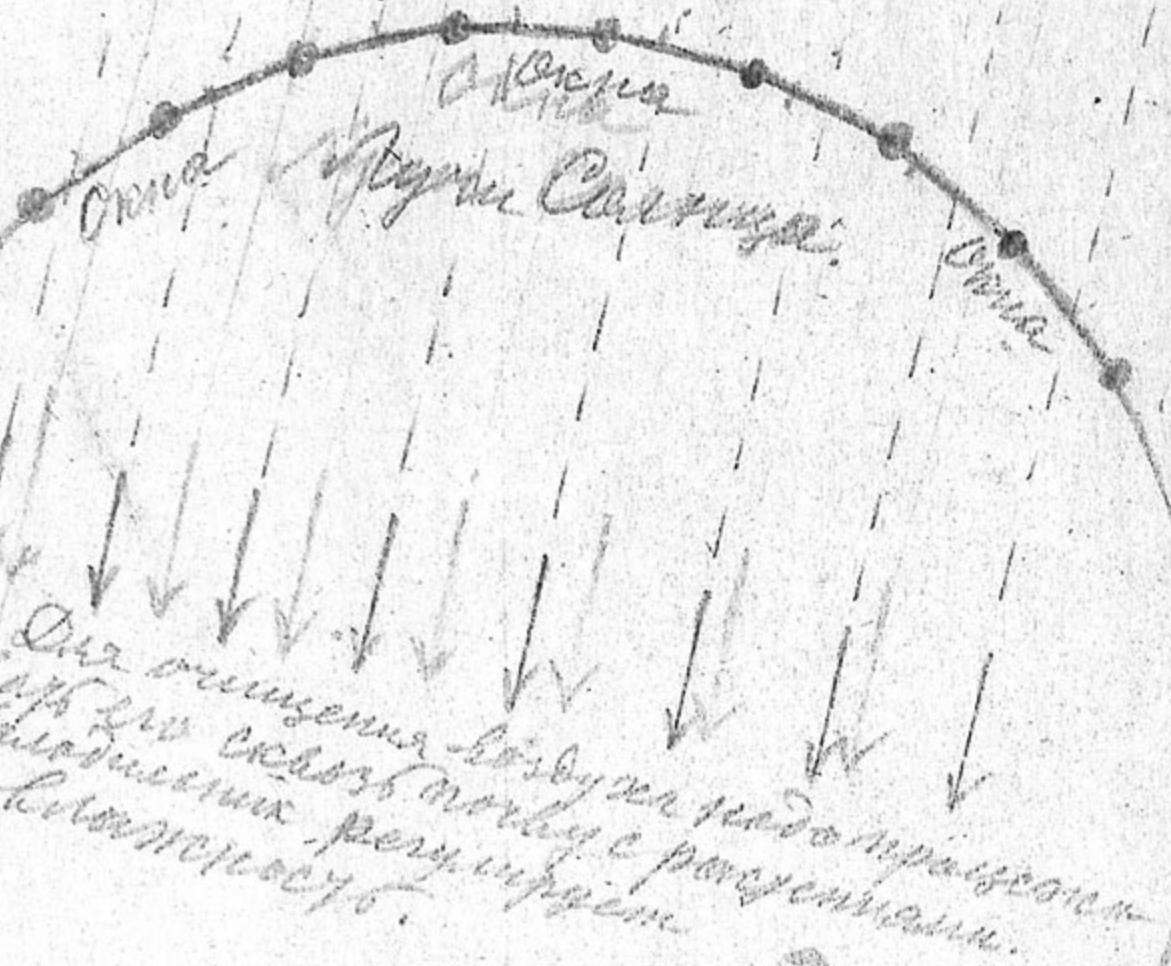 окна
окна
окна
Лучи Солнца.
окна
Для очищения воздуха надо пропускать
его сквозь почву с растениями.
Холодильник регулирует
влажность.